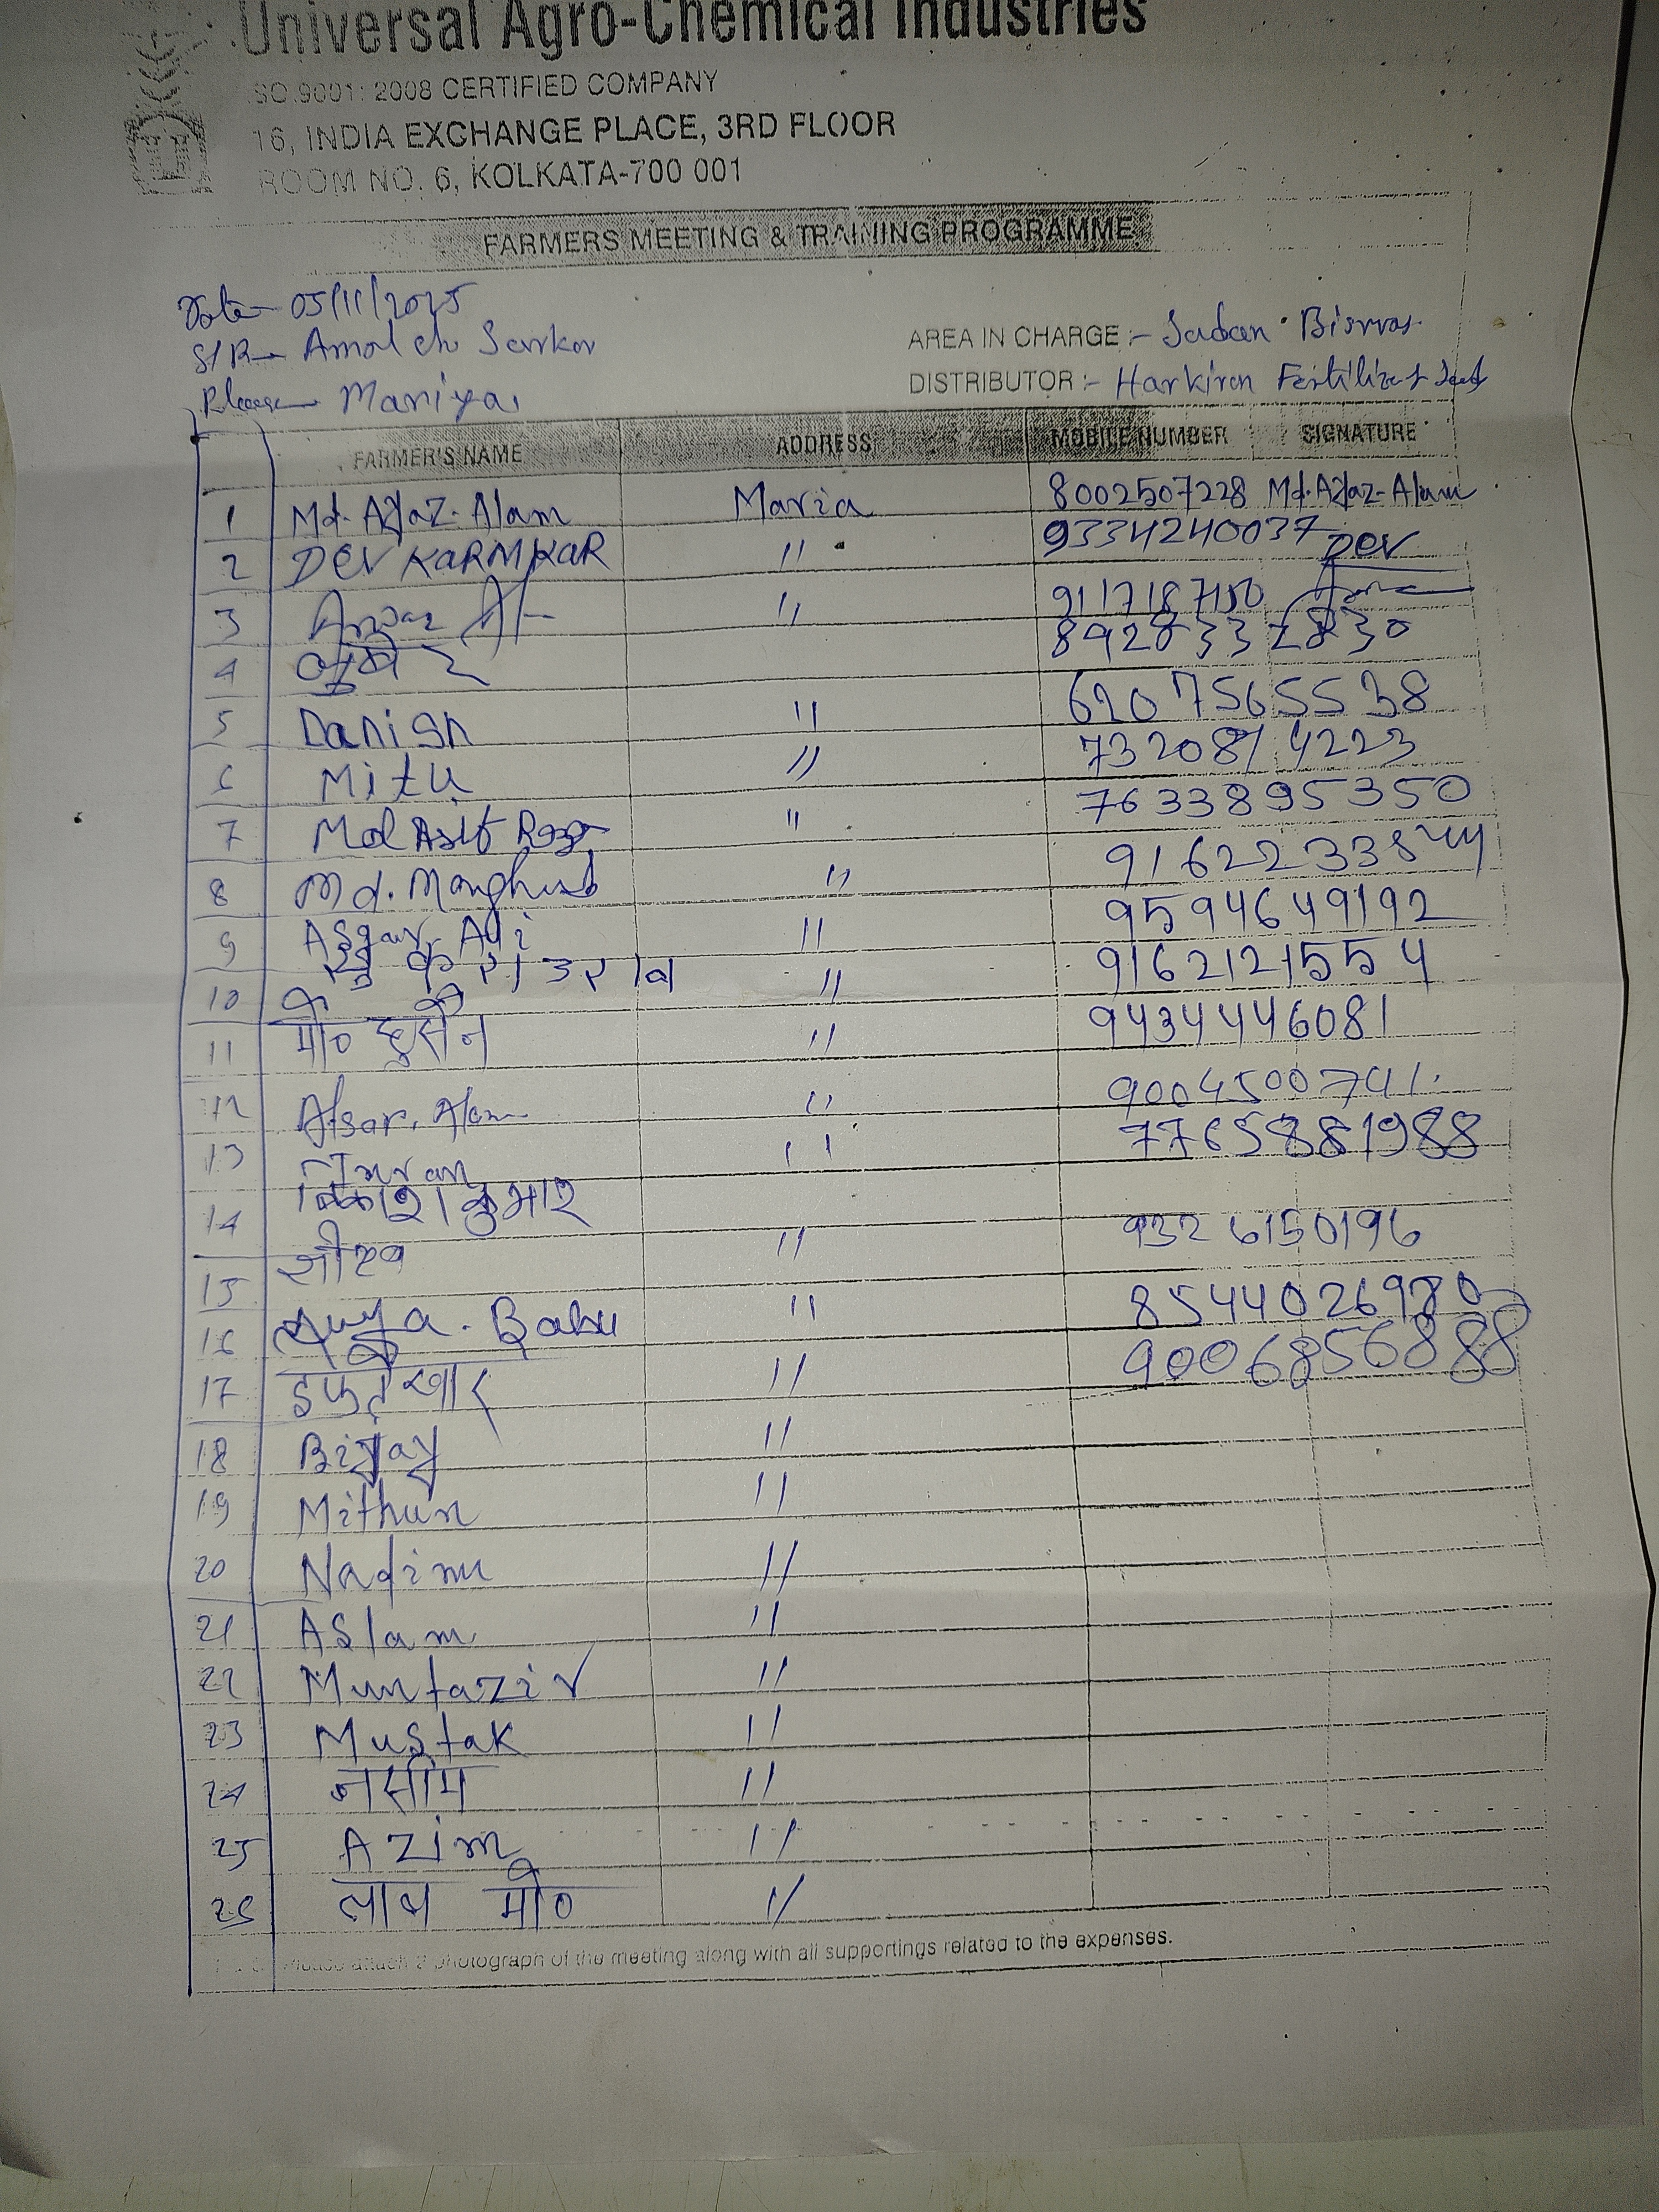 Universal Agro-Chemical Industries
ISO.9001: 2008 CERTIFIED COMPANY
16, INDIA EXCHANGE PLACE, 3RD FLOOR
ROOM NO. 6, KOLKATA-700 001
FARMERS MEETING & TRAINING PROGRAMME
Date- 05/11/2025
S/R- Amol ch Sarkar
AREA IN CHARGE :- Sadan Biswas
Maniya
DISTRIBUTOR :- Harkiran Fertilizer & Seed
FARMER'S NAME ADDRESS MOBILE NUMBER SIGNATURE
1 Md. Ayaz. Alam Maria 8002507228 Md. Ayaz- Alam
2 DEV KARMKAR " 9334240037 DEV
3 Anwar "
4
5 Danish " 6207565538
6 Mitu " 7320874223
7 Md Asif Reza " 7633895350
8 Md. "
9 Asgar Ali " 9594649192
10 " 9162121554
11 मो० हुसैन " 9434446081
12 Afsar. Alam " 9004500741
13 Imran " 7765881988
14 विकाश कुमार
15 " 9326150196
16 Babu " 8544026980
17 " 9006856888
18 Bijay "
19 Mithun "
20 Nadim "
21 Aslam "
22 Muntazir "
23 Mustak "
24 नसीम "
25 Azim "
26 मो० "
attach 2 photograph of the meeting along with all supportings related to the expenses.